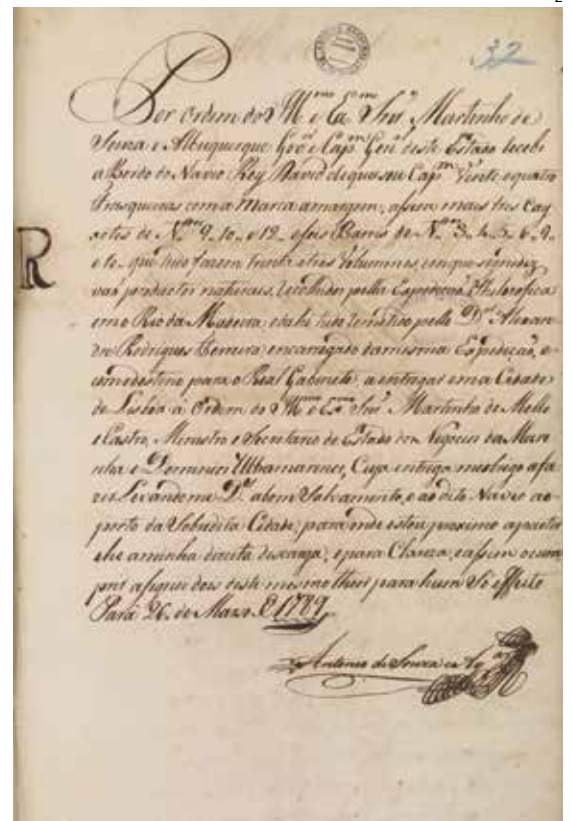 2
32
Por Ordem do Ill.mo e Ex.mo Snr. Martinho de
Souza e Albuquerque Gov.or e Cap.m Gen.al deste Estado recebi
a Bordo do Navio Rey David de que sou Cap.m Vinte e quatro
Frasqueiras com a Marca a margem, assim mais tres Cay
xotes de N.os 9. 10. e 12. e seis Barris de N.os 3. 4. 5. 6. 9.
R
e 10. que tudo fazem trinta e tres Volummes, em que
varios productos naturais, recolhidos pella Expediçaõ Philosofica
em o Rio da Madeira, e dahi tudo remetido pello D.or Alexan
dre Rodrigues Ferreira encarregado da mesma Expediçaõ, e
com destino para o Real Gabinete, a entregar em a Cidade
de Lisboa à Ordem do Ill.mo e Ex.mo Snr. Martinho de Mello
e Castro, Ministro e Secretario de Estado dos Negocios da Mari
nha e Dominios Ultramarinos, Cuja entrega me obrigo a fa
zer Levandome D.s a bom Salvamento, e ao dito Navio ao
porto da Sobredita Cidade, para onde estou proximo a partir
a minha direita descarga, e para Clareza, e assim
afignei dous deste mesmo theor para hum Só effeito
Pará 26. de Março de 1789
Antonio de Souza e